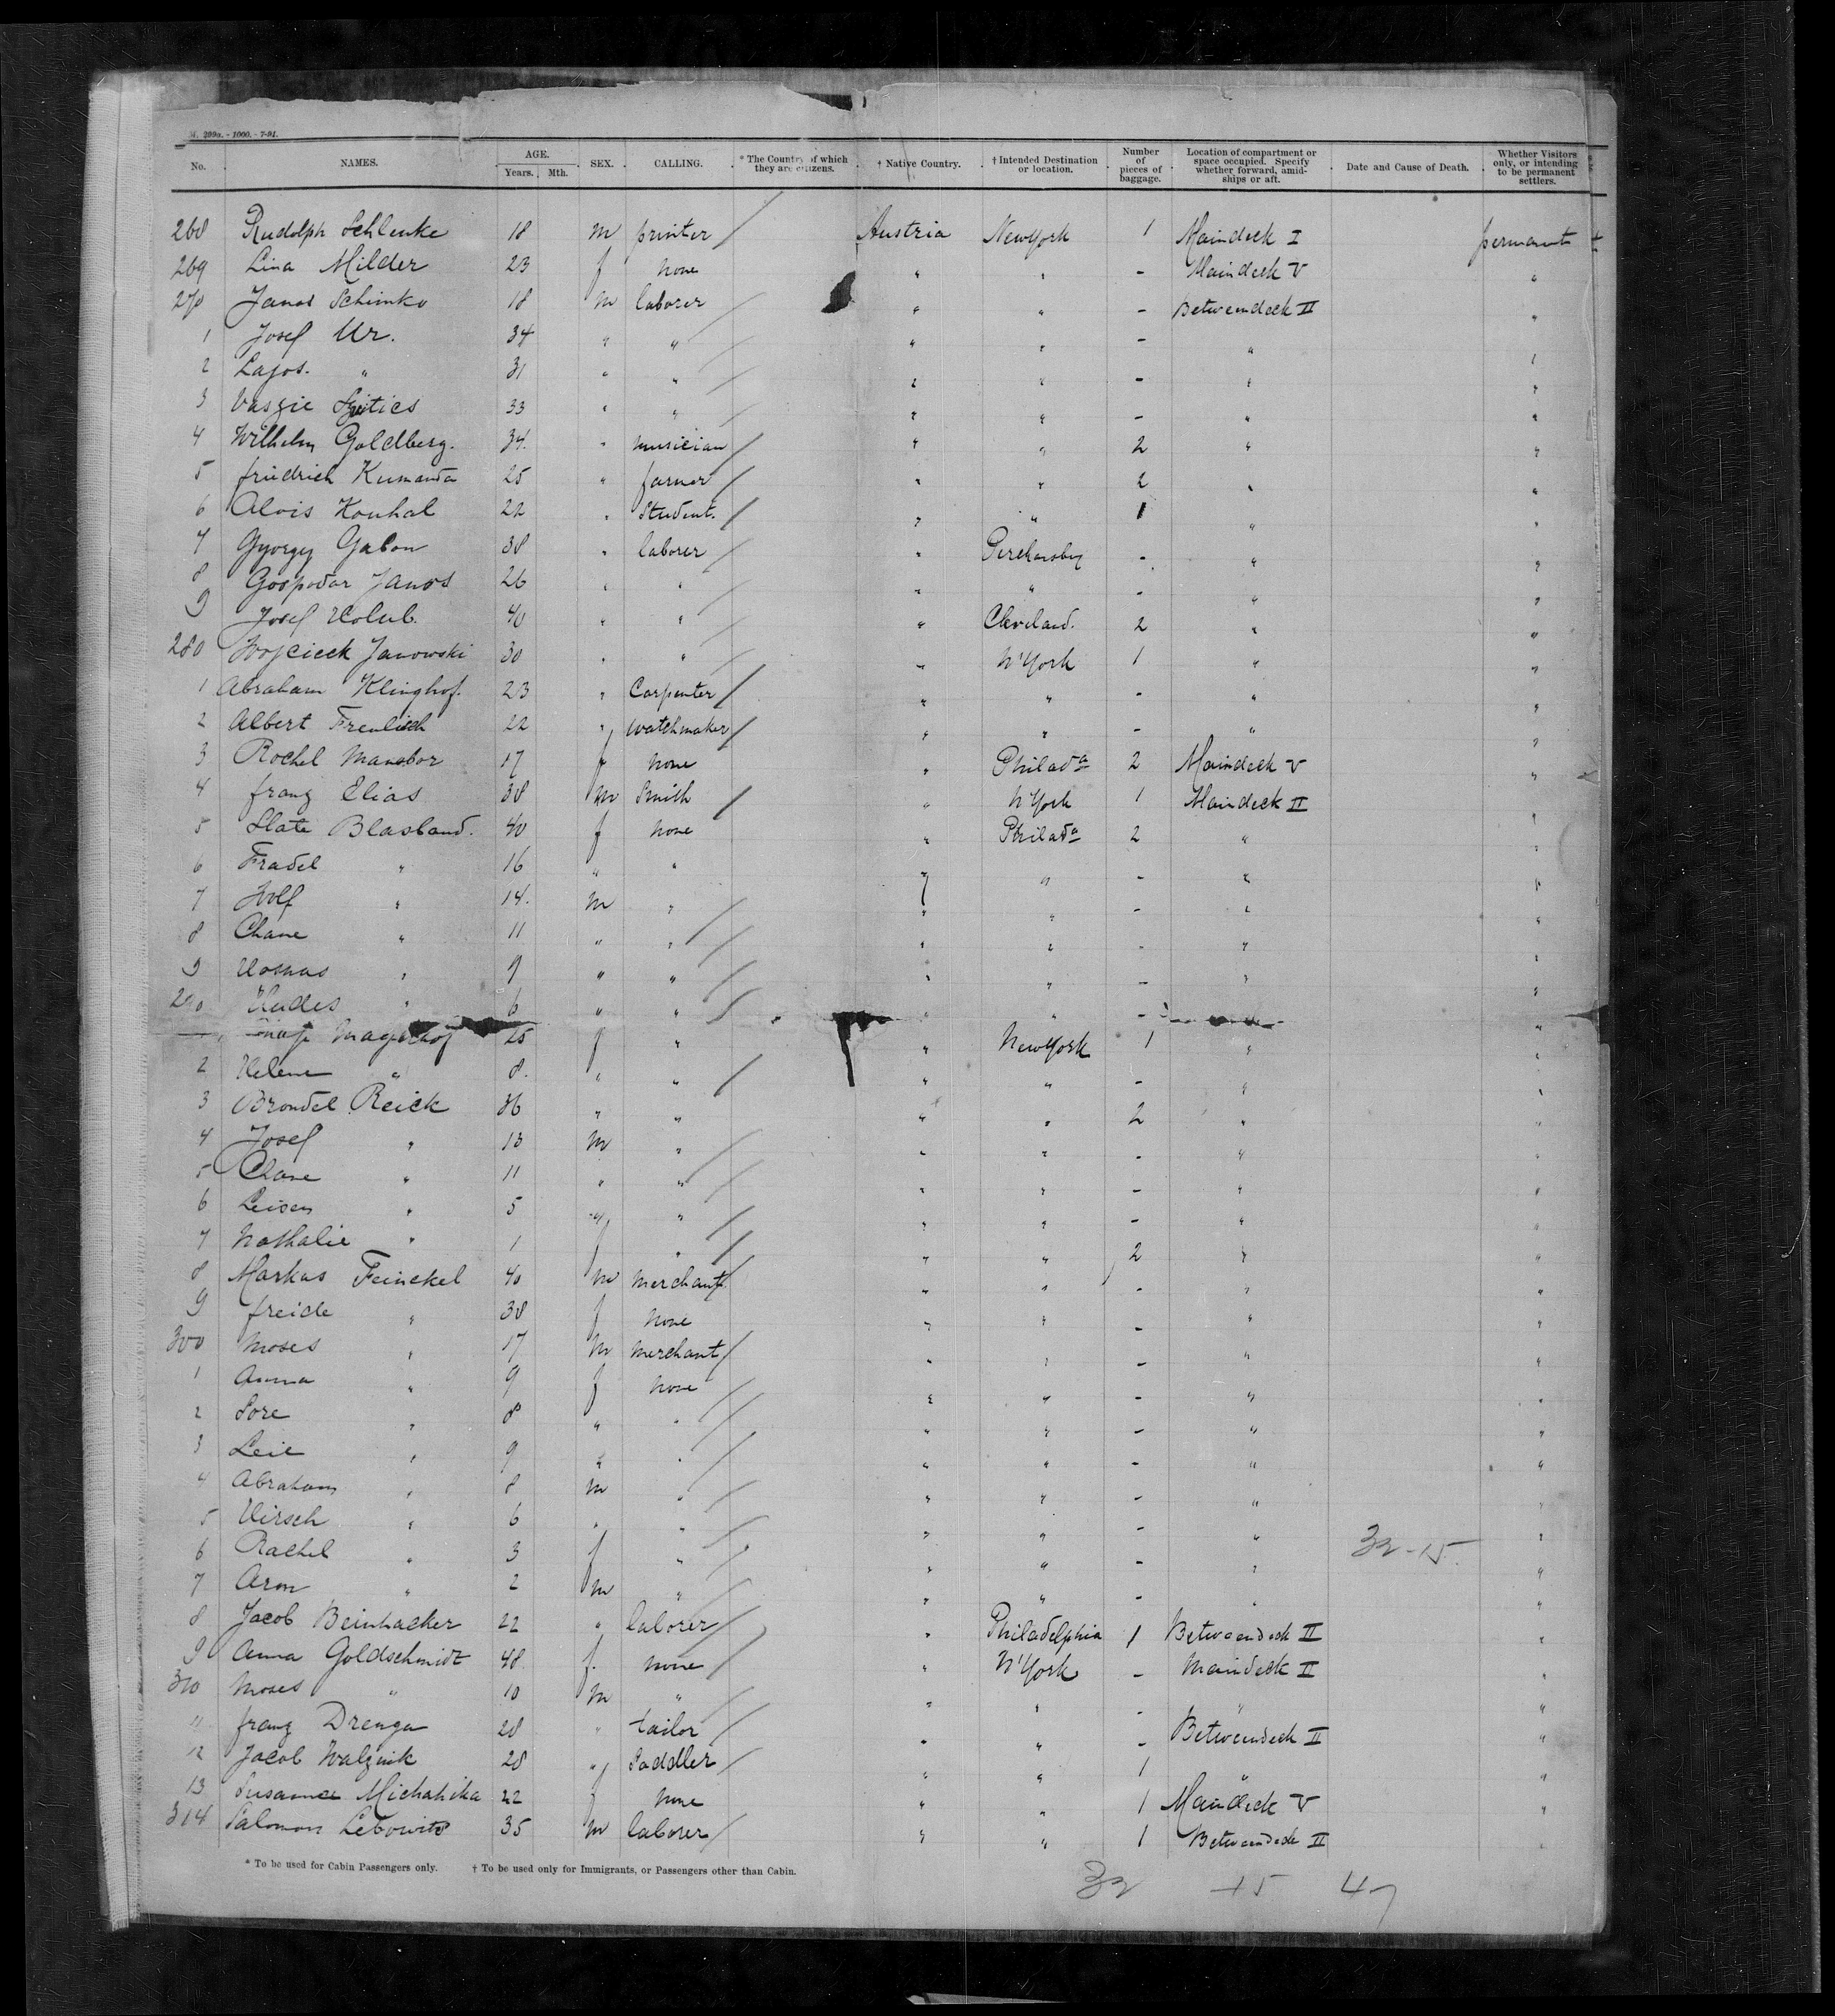 M. 299a. - 1000. - 7-91.
No. NAMES. AGE. Years. Mth. SEX. CALLING. * The Country of which they are citizens. † Native Country. † Intended Destination or location. Number of pieces of baggage. Location of compartment or space occupied. Specify whether forward, amidships or aft. Date and Cause of Death. Whether Visitors only, or intending to be permanent settlers.
268 Rudolph Schlenke 18 m printer / Austria New York 1 Maindeck I permanent
269 Lina Milder 23 f none " " - Maindeck V "
270 Janos Schimko 18 m laborer / " " - Betweendeck II "
1 Josef Ur. 34 " " / " " - " "
2 Lajos. " 31 " " / " " - " "
3 Vaszie 33 " " / " " - " "
4 Wilhelm Goldberg. 34. " musician / " " 2 " "
5 friedrich Kumanda 25 " farmer / " " 2 " "
6 Alois Kouhal 22 " Student. / " " 1 " "
7 Gyorgy Gabon 38 " laborer / " - " "
8 Gospodar Janos 26 " " / " " - " "
9 Josef Holub. 40 " " / " Cleveland. 2 " "
280 Wojcieck Janowski 30 " " / " N'York 1 " "
1 Abraham Klinghof. 23 " Carpenter / " " - " "
2 Albert Frenlich 22 " watchmaker / " " - " "
3 Rochel Manobor 17 f none " Philada 2 Maindeck V "
4 franz Elias 38 m Smith / " N'York 1 Maindeck II "
5 Slate Blasband. 40 f none " Philada 2 " "
6 Fradel " 16 " " " " - " "
7 Wolf " 14. m " / " " - " "
8 Chane " 11 " " / " " - " "
9 " 9 " " / " " - " "
290 Hudes " 6 " " / " " - "
Magerhof 25 f " " New York 1 " "
2 Helene " 8. " " / " " - " "
3 Brondel Reick 36 " " " " 2 " "
4 Josef " 13 m " / " " - " "
5 Chane " 11 " " / " " - " "
6 Leisen " 5 " " / " " - " "
7 Nathalie " 1 f " / " " 2 " "
8 Markus Feinekel 40 m merchant / " " - " "
9 freide " 38 f none " " - " "
300 Moses " 17 m merchant / " " - " "
1 Anna " 9 f none / " " - " "
2 Sore " 8 " " / " " - " "
3 Leie " 9 " " / " " - " "
4 Abraham " 8 m " / " " - " "
5 Hirsch " 6 " " / " " - " "
6 Rachel " 3 f " / " " - " 32-15. "
7 Aron " 2 m " / " " - " "
8 Jacob Beinhacker 22 " laborer / " Philadelphia 1 Betweendeck II "
9 Anna Goldschmidt 48 f. none / " N'York - Maindeck II "
310 Moses " 10 m " / " " - " "
11 franz Drenga 28 " tailor / " " - Betweendeck II "
12 Jacob Walznik 28 " Saddler / " " 1 " "
13 Susanna Michahika 22 f none " " 1 Maindeck V "
314 Salomon Lebowits 35 m laborer / " " 1 Betweendeck II "
* To be used for Cabin Passengers only. † To be used only for Immigrants, or Passengers other than Cabin.
32 15 47